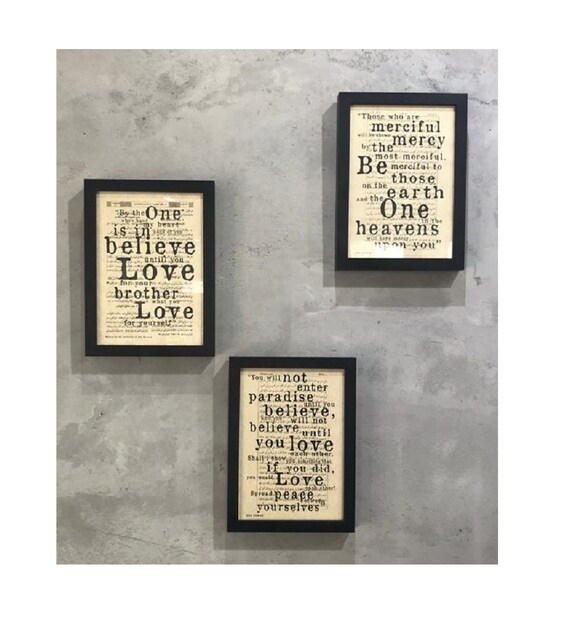 "By the One
my heart
is in
believe
until you
Love
for your
brother
what you
Love
for yourself"
"Those who are
merciful
will be shown
mercy
by the
most merciful.
Be merciful to
those
on the
earth
and the One
in the
heavens
will have mercy
upon you"
"You will not
enter
paradise
until you
believe,
will not
believe until
you love
each other.
Shall I show
if you did,
you would
Love
each other?
Spread
peace
yourselves"